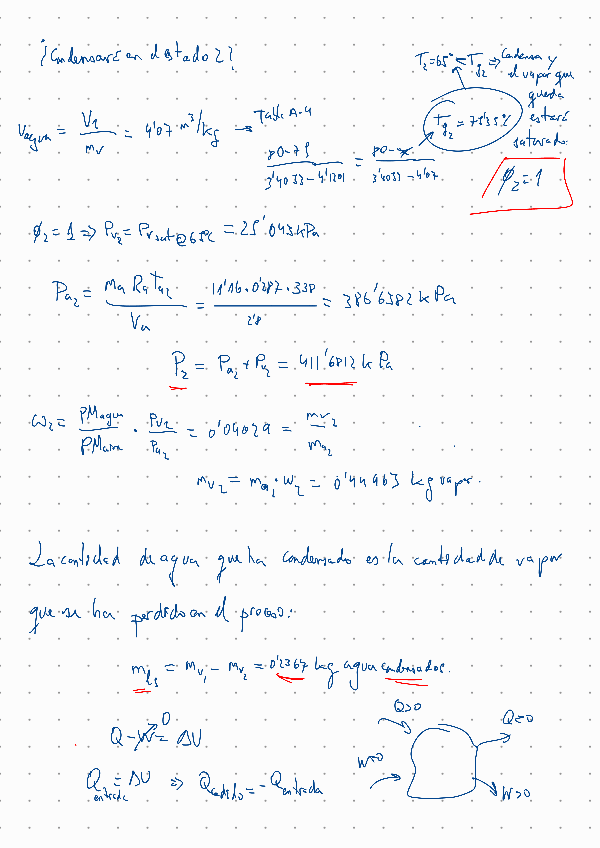 ¿Condensará en el estado 2?
T₂=65° < Tg₂ ⇒ Condensa y
el vapor que
queda
estará
saturado
Vagua = V₂/mv = 4'07 m³/kg → Tabla A-4
Tg₂ = 75'35 ºC
(80-75)/(3'4033-4'1291) = (80-x)/(3'4033-4'07)
ϕ₂=1
ϕ₂=1 ⇒ Pv₂ = Pv sat@65ºC = 25'043 kPa
Pa₂ = (ma Ra Ta₂)/Va = (11'16·0'287·338)/2'8 = 386'6382 kPa
P₂ = Pa₂ + Pv₂ = 411'6812 kPa
ω₂ = PMagua/PMaire · Pv₂/Pa₂ = 0'04029 = mv₂/ma₂
mv₂ = ma₂·ω₂ = 0'44963 kg vapor.
La cantidad de agua que ha condensado es la cantidad de vapor
que se ha perdido en el proceso:
ml₂ = mv₁ - mv₂ = 0'2367 kg agua condensados.
Q>0
Q<0
W<0
W>0
Q - W = ΔU
0
Qentrada = ΔU ⇒ Qcedido = -Qentrada